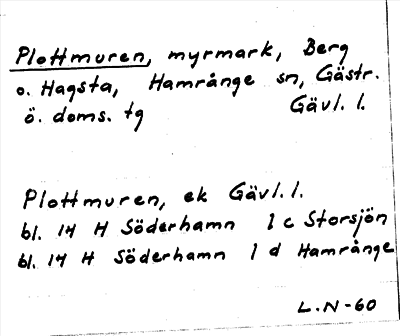 Plottmuren, myrmark, Berg
o. Hagsta, Hamrånge sn, Gästr.
ö. doms. tg Gävl. l.
Plottmuren, ek Gävl. l.
bl. 14 H Söderhamn 1 c Storsjön
bl. 14 H Söderhamn 1 d Hamrånge
L.N-60